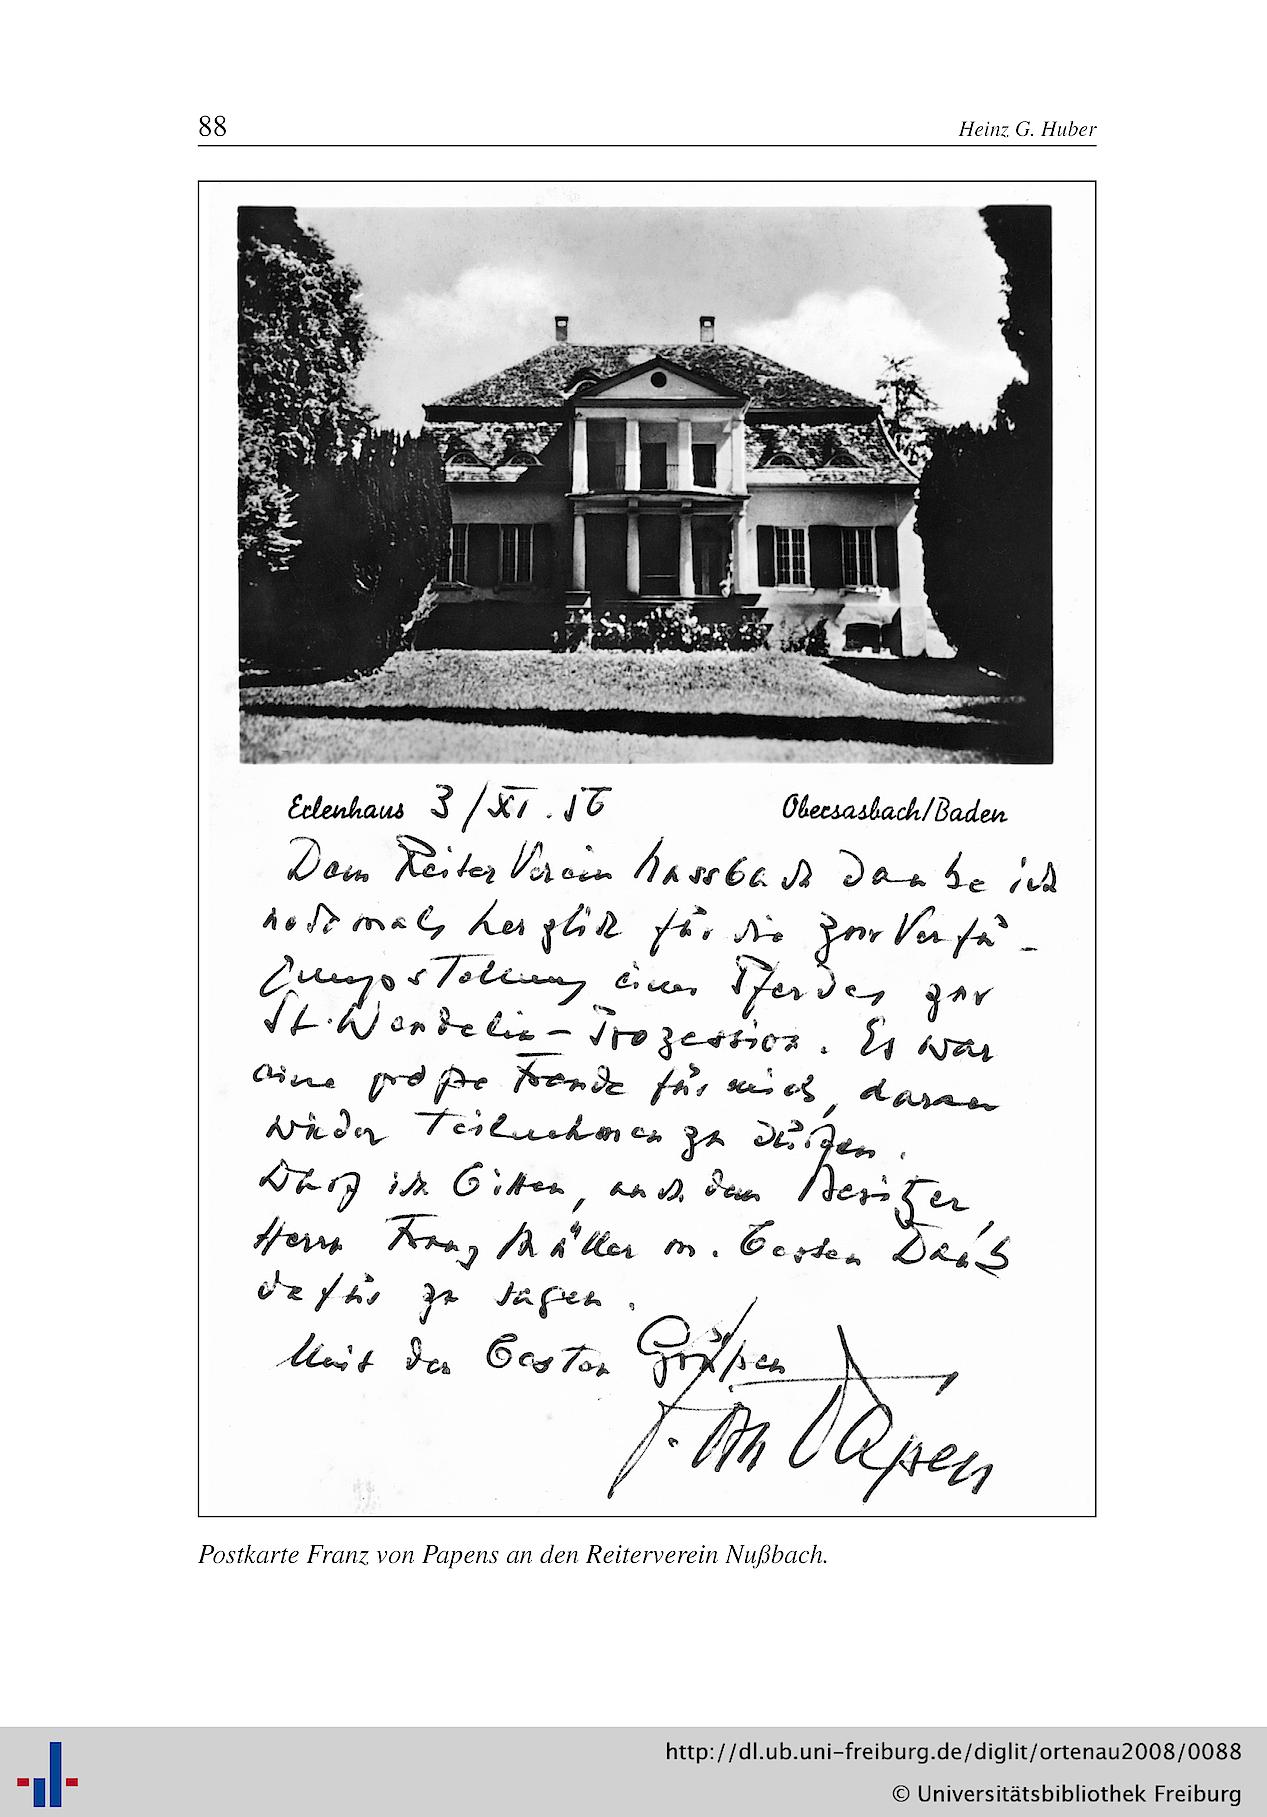 88
Heinz G. Huber
Erlenhaus 3/XI. 56
Obersasbach/Baden
Dem Reiter Verein Nussbach danke ich
nochmals herzlich für die zur Verfü-
gungstellung eines Pferdes zur
St. Wendelin-Prozession. Es war
eine große Freude für mich, daran
wieder teilnehmen zu dürfen.
Darf ich bitten, auch dem Besitzer,
Herrn Franz Müller m. besten Dank
dafür zu sagen.
Mit den besten Grüßen
F. von Papen
Postkarte Franz von Papens an den Reiterverein Nußbach.
http://dl.ub.uni-freiburg.de/diglit/ortenau2008/0088
© Universitätsbibliothek Freiburg